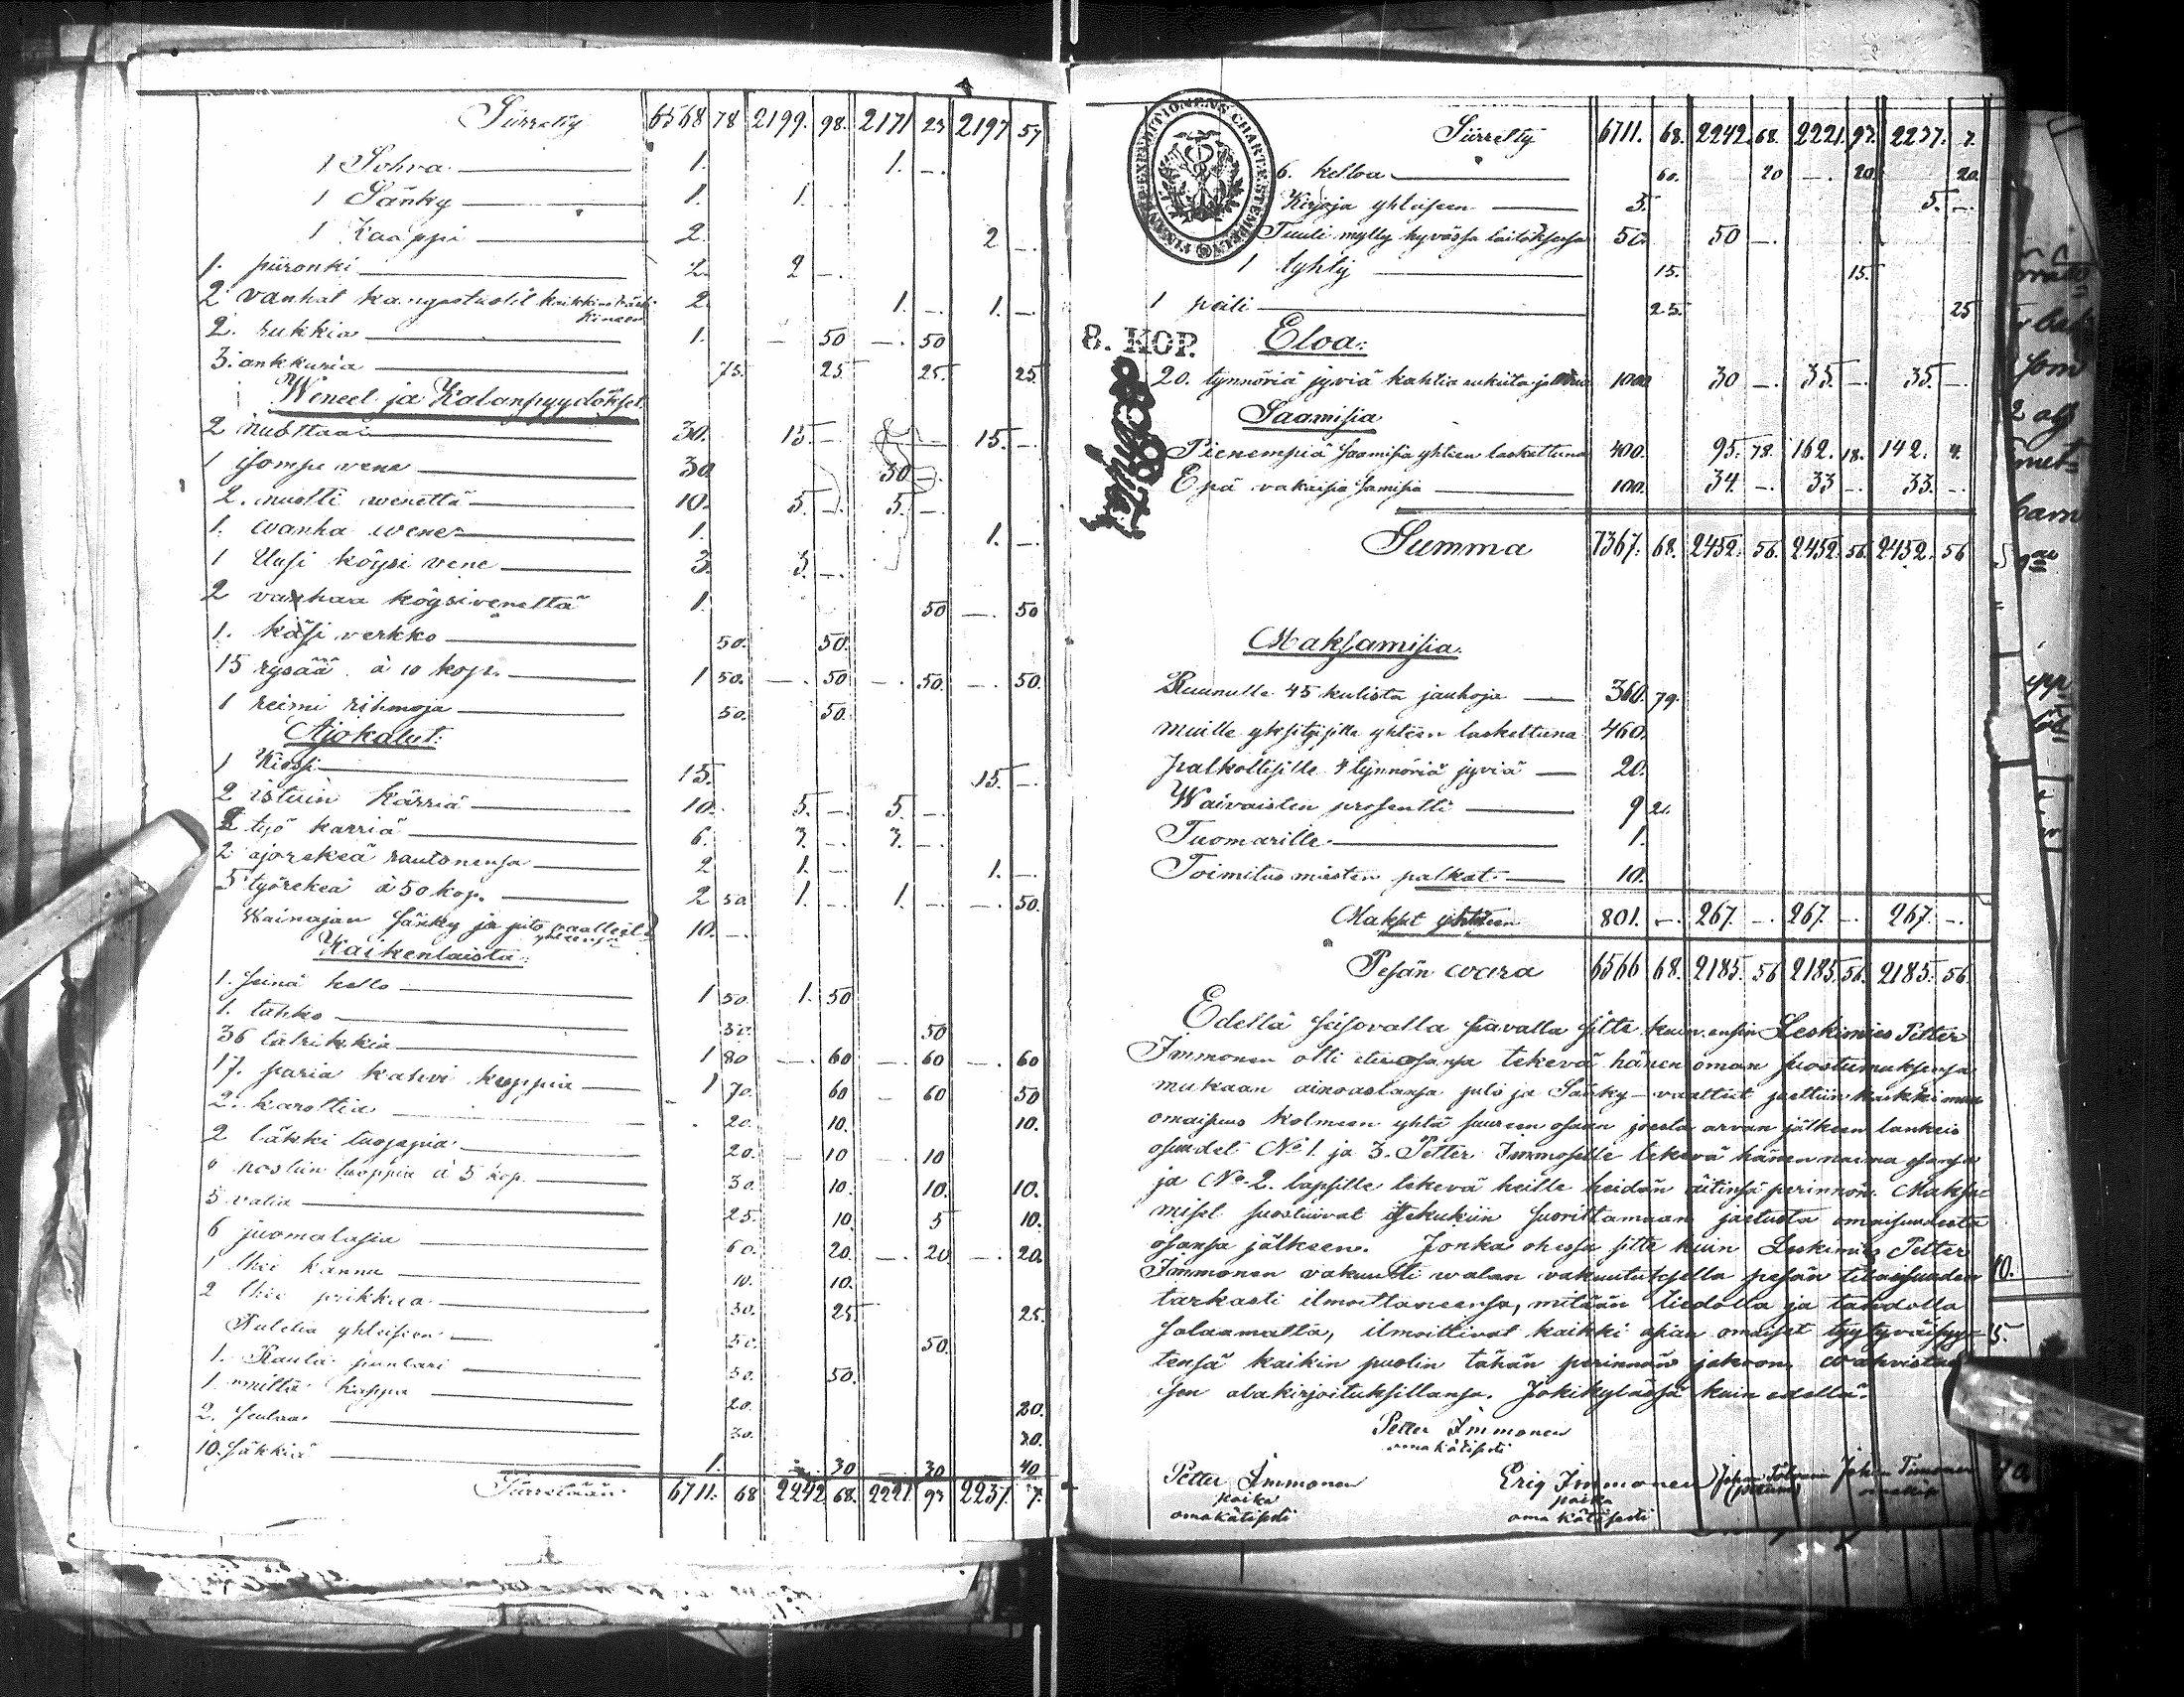 Siirretty 6568 78 2199. 98. 2171 23 2197 57
1 Sohva 1. 1. —.
1 Sänky 1. 1.
1 Kaappi 2. 2 —.
1. piironki 2. 2 —.
2 vanhat kangastuolit 2. 1. —. 1. —.
2. rukkia 1. — 50 —. 50
3. ankkuria 75. 25 25. 25.
Weneet ja Kalanpyydökset.
2 nuottaa 30. 15 —. 15. —.
1 Sompa vene 30. 30 —.
2. nuotti wenettä 10. 5. —. 5. —.
1. wanha wene 1. 1. —.
1 Uusi köysi vene 3. 3. —.
2 vanhaa köysivenettä 1. 50 —. 50
1. käsi verkko 50. 50.
15 rysää à 10 kop. 1 50. —. 50 —. 50. —. 50.
1 reimi rihmoja 50. 50.
Ajokalut:
1 Kiessi 15. 15. —.
2 istuin kärriä 10. 5. —. 5. —.
2 työ kärriä 6. 3. —. 3. —.
2 ajorekeä rautonensa 2 1. —. 1. —.
5 työrekeä à 50 kop. 2 50 1. —. 1. —. —. 50.
Wainajan sänky ja pito vaatteet yhteensä 10. —.
Kaikenlaista:
1. seinä kello 1 50. 1. 50
1. tahko 50. 50
36 talrikkia 1 80 —. 60 —. 60 —. 60
17. paria kahvi kuppia 1 70. 60 — 60 50
2. karottia 20. 10. 10.
2 läkki tuoppia 20. — 10 — 10
6 posliin tuoppia à 5 kop. 30. 10. 10. 10.
5 vatia 25. 10. 5 10.
6 juomalasia 60. 20. —. 20 —. 20.
1 thee kannu 10. 10.
2 thee prikkaa 50. 25 25.
Putelia yhteiseen 50. 50.
1. Rauta puntari 50. 50.
1. mitta kappa 20. 20.
2. seulaa 20. 20.
10. säkkiä 1. 30 30 40
Siirretään 6711. 68 2242 68. 2221. 93 2237. 7.
FINANCE EXPEDITIONENS CHARTÆ STEMPEL
8. KOP.
Siirretty 6711. 68. 2242. 68. 2221. 93. 2237. 7.
6. kelloa 60. 20 —. 20 20
Kirjoja yhteiseen 5. 5. —.
Tuuli mylly hyvässä laitoksessa 50. 50 —.
1 lyhty 15. 15.
1 peili 25. 25
Eloa:
20. tynnöriä jyviä kahtia rukiita ja 100. 30 —. 35 —. 35 —.
Saamisia
Pienempiä saamisia yhteen laskettuna 400. 95. 78. 162. 18. 142. 4.
Epä vakaisia saamisia 100. 34. —. 33 —. 33. —.
Summa 7367. 68. 2452. 56. 2452. 56. 2452. 56
Maksamisia.
Ruunulle 45 kulista jauhoja 360. 79.
muille yksityisille yhteen laskettuna 460.
palkollisille 4 tynnöriä jyviä 20.
Waivaisten prosentti 9 21.
Tuomarille 1.
Toimitus miesten palkat 10.
Maksut yhteen 801. —. 267. —. 267. —. 267. —.
Pesän wara 6566 68. 2185. 56 2185. 56. 2185. 56.
Edellä seisovalla tavalla sitte kuin ensin Leskimies Petter
Immonen otti etuosansa tekevä hänen oman suostumuksensa
mukaan ainoastansa pito ja Sänky-vaattet jaettiin kaikki muu
omaisuus kolmeen yhtä suureen osaan joista arvan jälkeen lankeis
osuudet No 1. ja 3. Petter Immoselle tekevä hänen naima osansa
ja No 2. lapsille tekevä heille heidän äitinsä perinnön. Maksa-
miset suostuivat itsekukin suorittamaan jaetusta omaisuudesta
osansa jälkeen. Jonka ohessa sitte kuin Leskimies Petter
Immonen vakuutti walan vakuutuksella pesän tilaisuuden
tarkasti ilmoittaneensa, mitään tiedolla ja tahdolla
salaamatta, ilmoittivat kaikki asian omaiset tyytyväisyy-
tensä kaikin puolin tähän perinnön jakoon. wahvistaa
sen alakirjoituksillansa. Jokikylässä kuin edellä.
Petter Immonen
omakätisesti
Petter Immonen Eriq Immonen Johan
poika poika
omakätisesti oma kätisesti